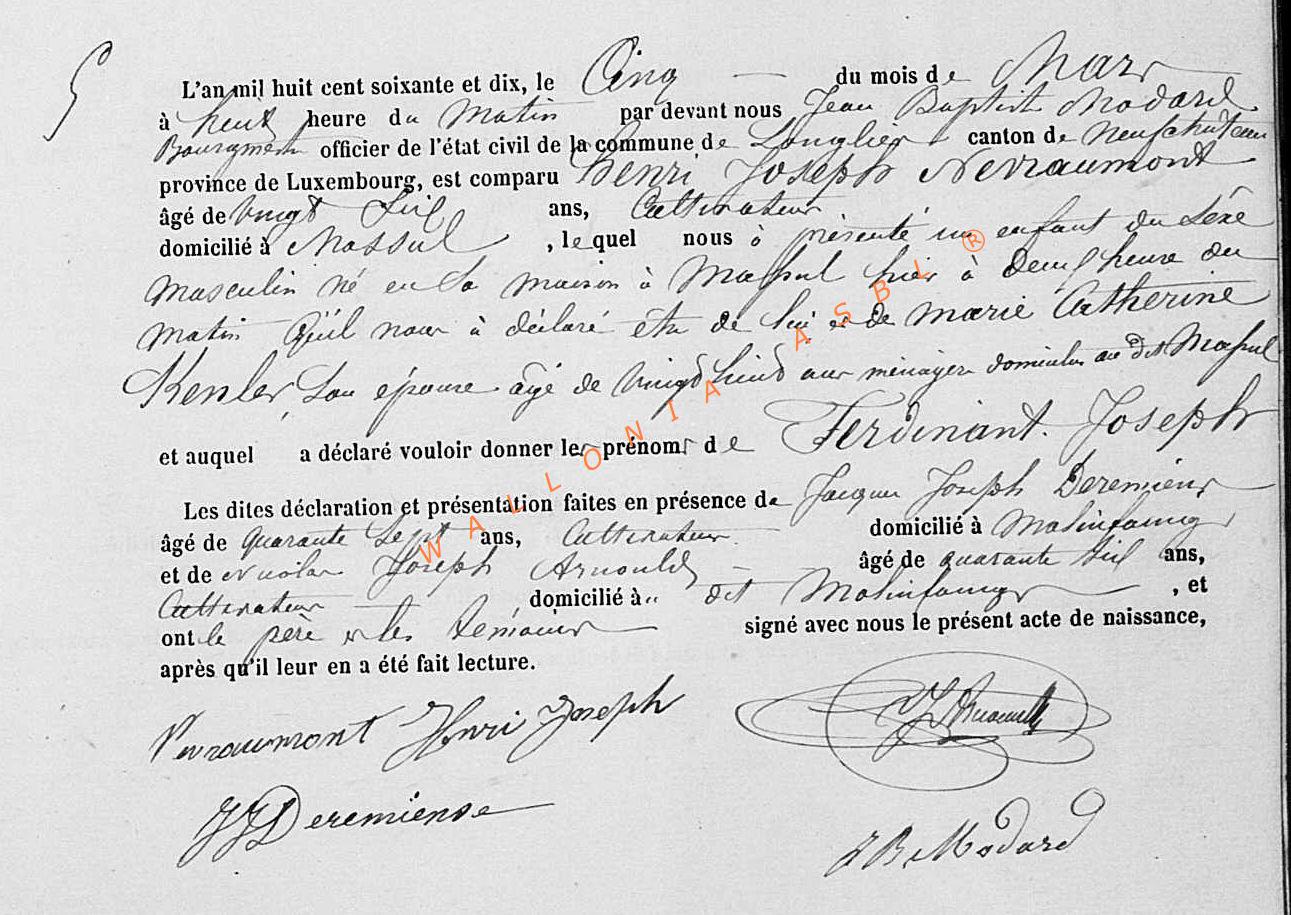 5
L'an mil huit cent soixante et dix, le Cinq du mois de Mars
à heuit heure du Matin par devant nous Jean Baptist Modard
Bourgmestre officier de l'état civil de la commune de Longlier canton de Neufchateau
province de Luxembourg, est comparu Henri Joseph Nevraumont
âgé de vingt ans, Cultivateur
domicilié à Massul, lequel nous à présenté un enfant du sexe
masculin né en sa maison à Massul hier à heure du
matin qu'il nous à déclaré être de lui et de Marie Catherine
Kenler, son épouse âgé de vingt ans ménagere domicilée au dit Massul
et auquel a déclaré vouloir donner les prénoms de Ferdinant Joseph
Les dites déclaration et présentation faites en présence de Jacques Joseph Deremiens
âgé de quarante sept ans, Cultivateur domicilié à Molinfaing
et de Joseph Arnould âgé de quarante ans,
Cultivateur domicilié à dit Molinfaing, et
ont le père et les temoins signé avec nous le présent acte de naissance,
après qu'il leur en a été fait lecture.
Nevraumont Henri Joseph
JJ Deremiense
JB Modard
WALLONIA ASBL ®